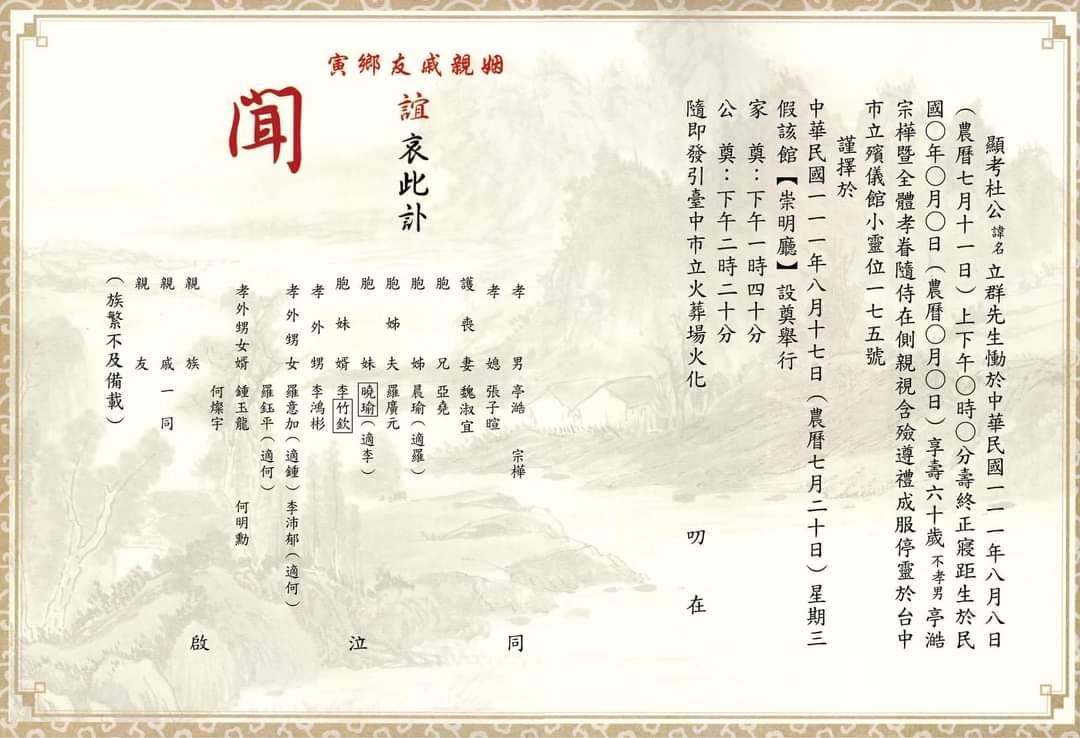 顯考杜公諱名立群先生慟於中華民國一一一年八月八日
（農曆七月十一日）上下午〇時〇分壽終正寢距生於民
國〇年〇月〇日（農曆〇月〇日）享壽六十歲不孝男亭澔
宗樺暨全體孝眷隨侍在側親視含殮遵禮成服停靈於台中
市立殯儀館小靈位一七五號
謹擇於
中華民國一一一年八月十七日（農曆七月二十日）星期三
假該館【崇明廳】設奠舉行
家奠：下午一時四十分
公奠：下午二時二十分
隨即發引臺中市立火葬場火化
叨在
姻親戚友鄉寅
誼哀此訃
聞
孝男 亭澔 宗樺
孝媳 張子暄
護喪妻 魏淑宜
胞兄 亞堯
胞姊 晨瑜（適羅）
胞姊夫 羅廣元
胞妹 曉瑜（適李）
胞妹婿 李竹欽
孝外甥 李鴻彬
孝外甥女 羅意加（適鍾）李沛郁（適何）
羅鈺平（適何）
孝外甥女婿 鍾玉龍 何明勳
何燦宇
親族
親戚一同
親友
（族繁不及備載）
同泣啟